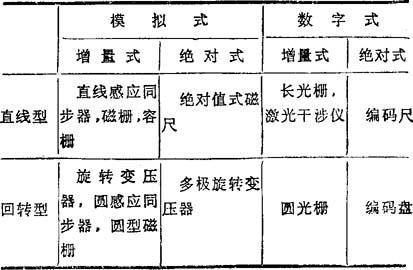 模拟式 数字式
增量式 绝对式 增量式 绝对式
直线型
直线感应同
步器,磁栅,容
栅
绝对值式磁
尺
长光栅,
激光干涉仪
编码尺
回转型
旋转变压
器,圆感应同
步器,圆型磁
栅
多极旋转变
压器
圆光栅
编码盘